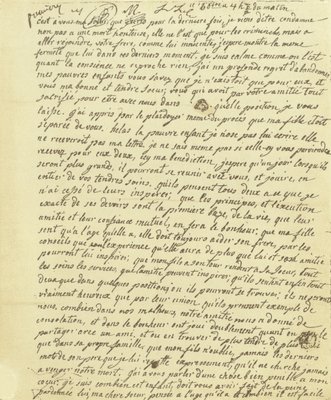 ce 16. 8bre à 4 h ½ du matin
c'est a vous, ma Soeur, que j'écris pour la dernière fois, je viens d'être condamnée
non pas a une mort honteuse, elle ne l'est que pour les criminels, mais a
aller rejoindre votre frère, comme lui innocente, j'espere montrer la même
fermeté que lui dans ces derniers moments. je suis calme comme on l'est
quand la conscience ne reproche rien, j'ai un profond regret d'abandonner
mes pauvres enfants vous savez que je n'existois que pour eux, et
vous ma bonne et tendre Soeur, vous qui avez par votre amitie tout
sacrifié pour être avec nous dans quelle position je vous
laisse. j'ai appris par le plaidoyer même du procès que ma fille étoit
séparée de vous. hélas la pauvre enfant je n'ose pas lui ecrire elle
ne recevroit pas ma lettre je ne sais même pas si celle ci vous parviendra
recevez pour eux deux, icy ma bénédiction. j'espere qu'un jour lorsqu'ils
seront plus grands, ils pourront se réunir avec vous, et jouir en
entier de vos tendres soins, qu'ils pensent tous deux a ce que je
n'ai cessé de leurs inspirer que les principes, et l'execution
exacte de ses devoirs sont la premiere baze de la vie, que leur
amitie et leur confiance mutuelle, en fera le bonheur, que ma fille
sent qu'a l'age qu'elle a, elle doit toujours aider son frere, par les
conseils que l'experience qu'elle aura de plus que lui et son amitie
pourront lui inspirer; que mon fils a son tour rende a sa Soeur, tout
les soins, les services, que l'amitie peuvent inspirer, qu'ils sentent enfin tout
deux que dans quelque position ou ils pourront se trouver, ils ne seront
vraiment heureux que par leur union. qu'ils prennent exemple de
nous, combien dans nos malheurs, notre amitie nous a donné de
consolation, et dans le bonheur on jouit doublement quand on peut le
partager avec un ami, et ou en trouver de plus tendre de plus
que dans sa propre famille. que mon fils n'oublie jamais les derniers
mots de son pere, que je lui repete expressément qu'il ne cherche jamais
a venger notre mort. j'ai a vous parler d'une chose bien pénible a mon
coeur. je sais combien cet enfant doit vous avoir fait de la peine
pardonnez lui, ma chere Soeur, pensez a l'age qu'il a, et combien il est facile